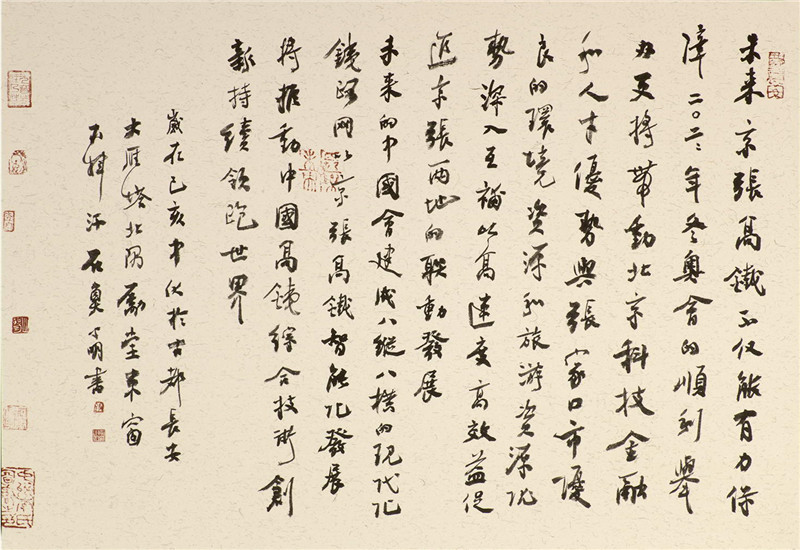 未来京張高鐵不仅能有力保
障二〇二二年冬奧會的順利舉
办更将带動北京科技金融
和人才優勢與張家口市優
良的環境資源和旅游資源优
勢深入互補以高速度高效益促
進京張两地的联動發展
未来的中國會建成八縱八横的現代化
鐵路网以京張高鐵智能化發展
将推動中國高鐵综合技術創
新持續领跑世界
歲在己亥中伏於古都長安
大雁塔北隅 堂東窗
不揮汗石 明書